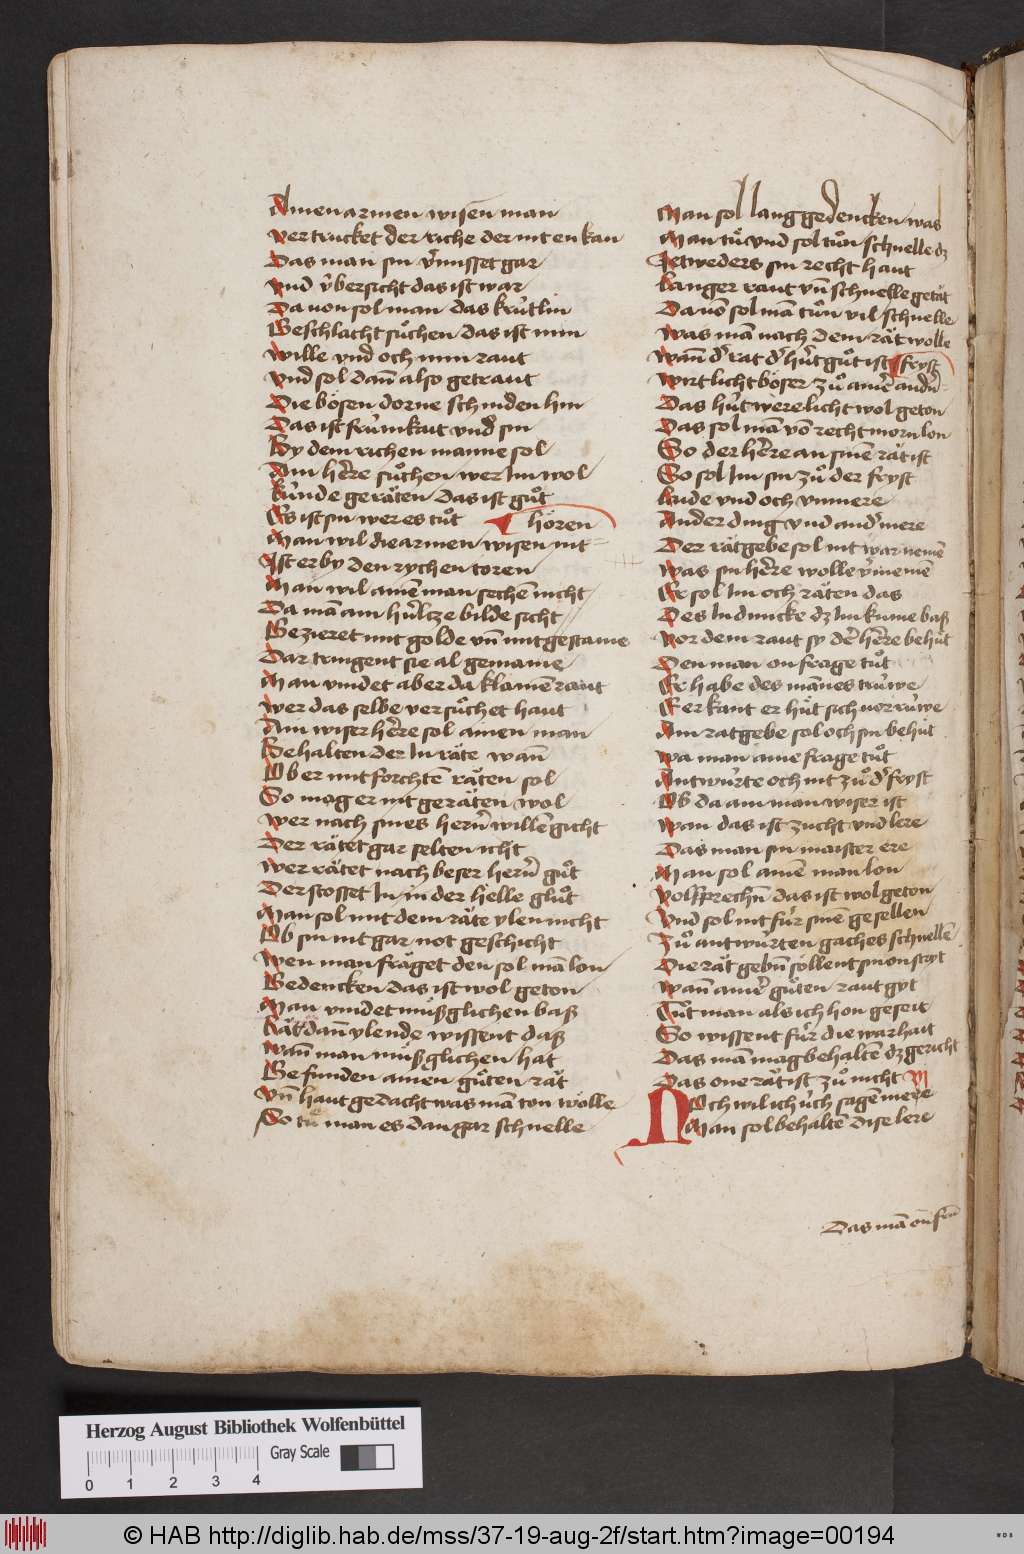 Amen armen wisen man
vertrucket der riche der nit en kan
Das man sin v̾misset gar
vnd v̾bersicht das ist war
Da von sol man das krütlin
Geschlacht suͦchen das ist min
wille vnd och min raut
vnd sol dañ also getraut
Die bösen dorne schniden hin
Das ist frümkait vnd sin
By dem richen manne sol
Ain her̾e suͦchen wer Im wol
künde geräten das ist guͦt
Es ist sin wer es tuͦt
hören
Man wil die armen wisen nit
Ist er by den rychen toren
Man wil amē man sechē nicht
Da mā am hültze bilde sicht
Gezieret mit golde vn̄ mit gestaine
Dar tringent sie al gemaine
Man vindet aber da klainē raut
wer das selbe versuͦchet haut
Ain wiser her̾e sol ainen man
Behalten der In räte wan̄
Ob er mit forchtē räten sol
So mag er nit geräten wol
wer nach sines hern̄ willē gicht
Der rätet gar selten icht
wer rätet nach beser hern̄ guͦt
Der stosset In in der helle gluͦt
Man sol mit dem räte ylen nicht
Ob sin nit gar not geschicht
wen man fräget den sol mā lon
Bedencken das ist wol geton
Man vindet müßglichen baß
Rät dan̄ ylende wissent daß
wan̄ man müßglichen hat
Befunden ainen guͦten rät
vn̄ haut gedacht was mā ton wölle
So tuͦ man es dan gar schnelle
Man sol lang gedencken was
Man tuͦ vnd sol tuͦn schnelle dz
Ietweders sin recht haut
Langer raut vn̄ schnelle getät
Da vō sol mā tuͦn vil schnelle
was mā nach dem rät wolle
wan̄ d̾ rat d̾ hüt guͦt ist
fryst
wirt licht böser zuͦ ainer̾ andn̄
Das hüt were licht wol geton
Das sol mā vō recht morn lon
So der her̾e an sinē rät ist
So sol Im sin zuͦ der fryst
laide vnd och vnmere
Ander ding vnd and̾ mere
Der rätgebe sol nit war nemē
was sin her̾e wolle v̾nemē
Er sol Im och räten das
Des In duncke dz Im kume baß
vor dem raut sy der̾ her̾e behüt
Den man on frage tuͦt
Er habe des mānes trüwe
Er kant er hüt sich vor rüwe
Ain ratgebe sol och sin behüt
wa man aine frage tuͦt
Antwürte och nit zuͦ d̾ fryst
Ob da ain man wiser ist
wan das ist zucht vnd lere
Das man sin maister ere
Man sol ainē man lon
volsprechn̄ das ist wol geton
Vnd sol nit für sinē gesellen
Zuͦ antwürten gaches schnellē
Die rät gebn̄ söllent sin on stryt
wan̄ ainer̾ guͦten raut gyt
Tuͦt man als ich hon geseit
So wissent für die warhait
Das mā mag behaltē dz gericht
Das one rät ist zuͦ nicht
Noch wil ich üch sagē mere
Man sol behaltē dise lere
Das mā on
Herzog August Bibliothek Wolfenbüttel
Gray Scale
0 1 2 3 4
© HAB http://diglib.hab.de/mss/37-19-aug-2f/start.htm?image=00194
WDB